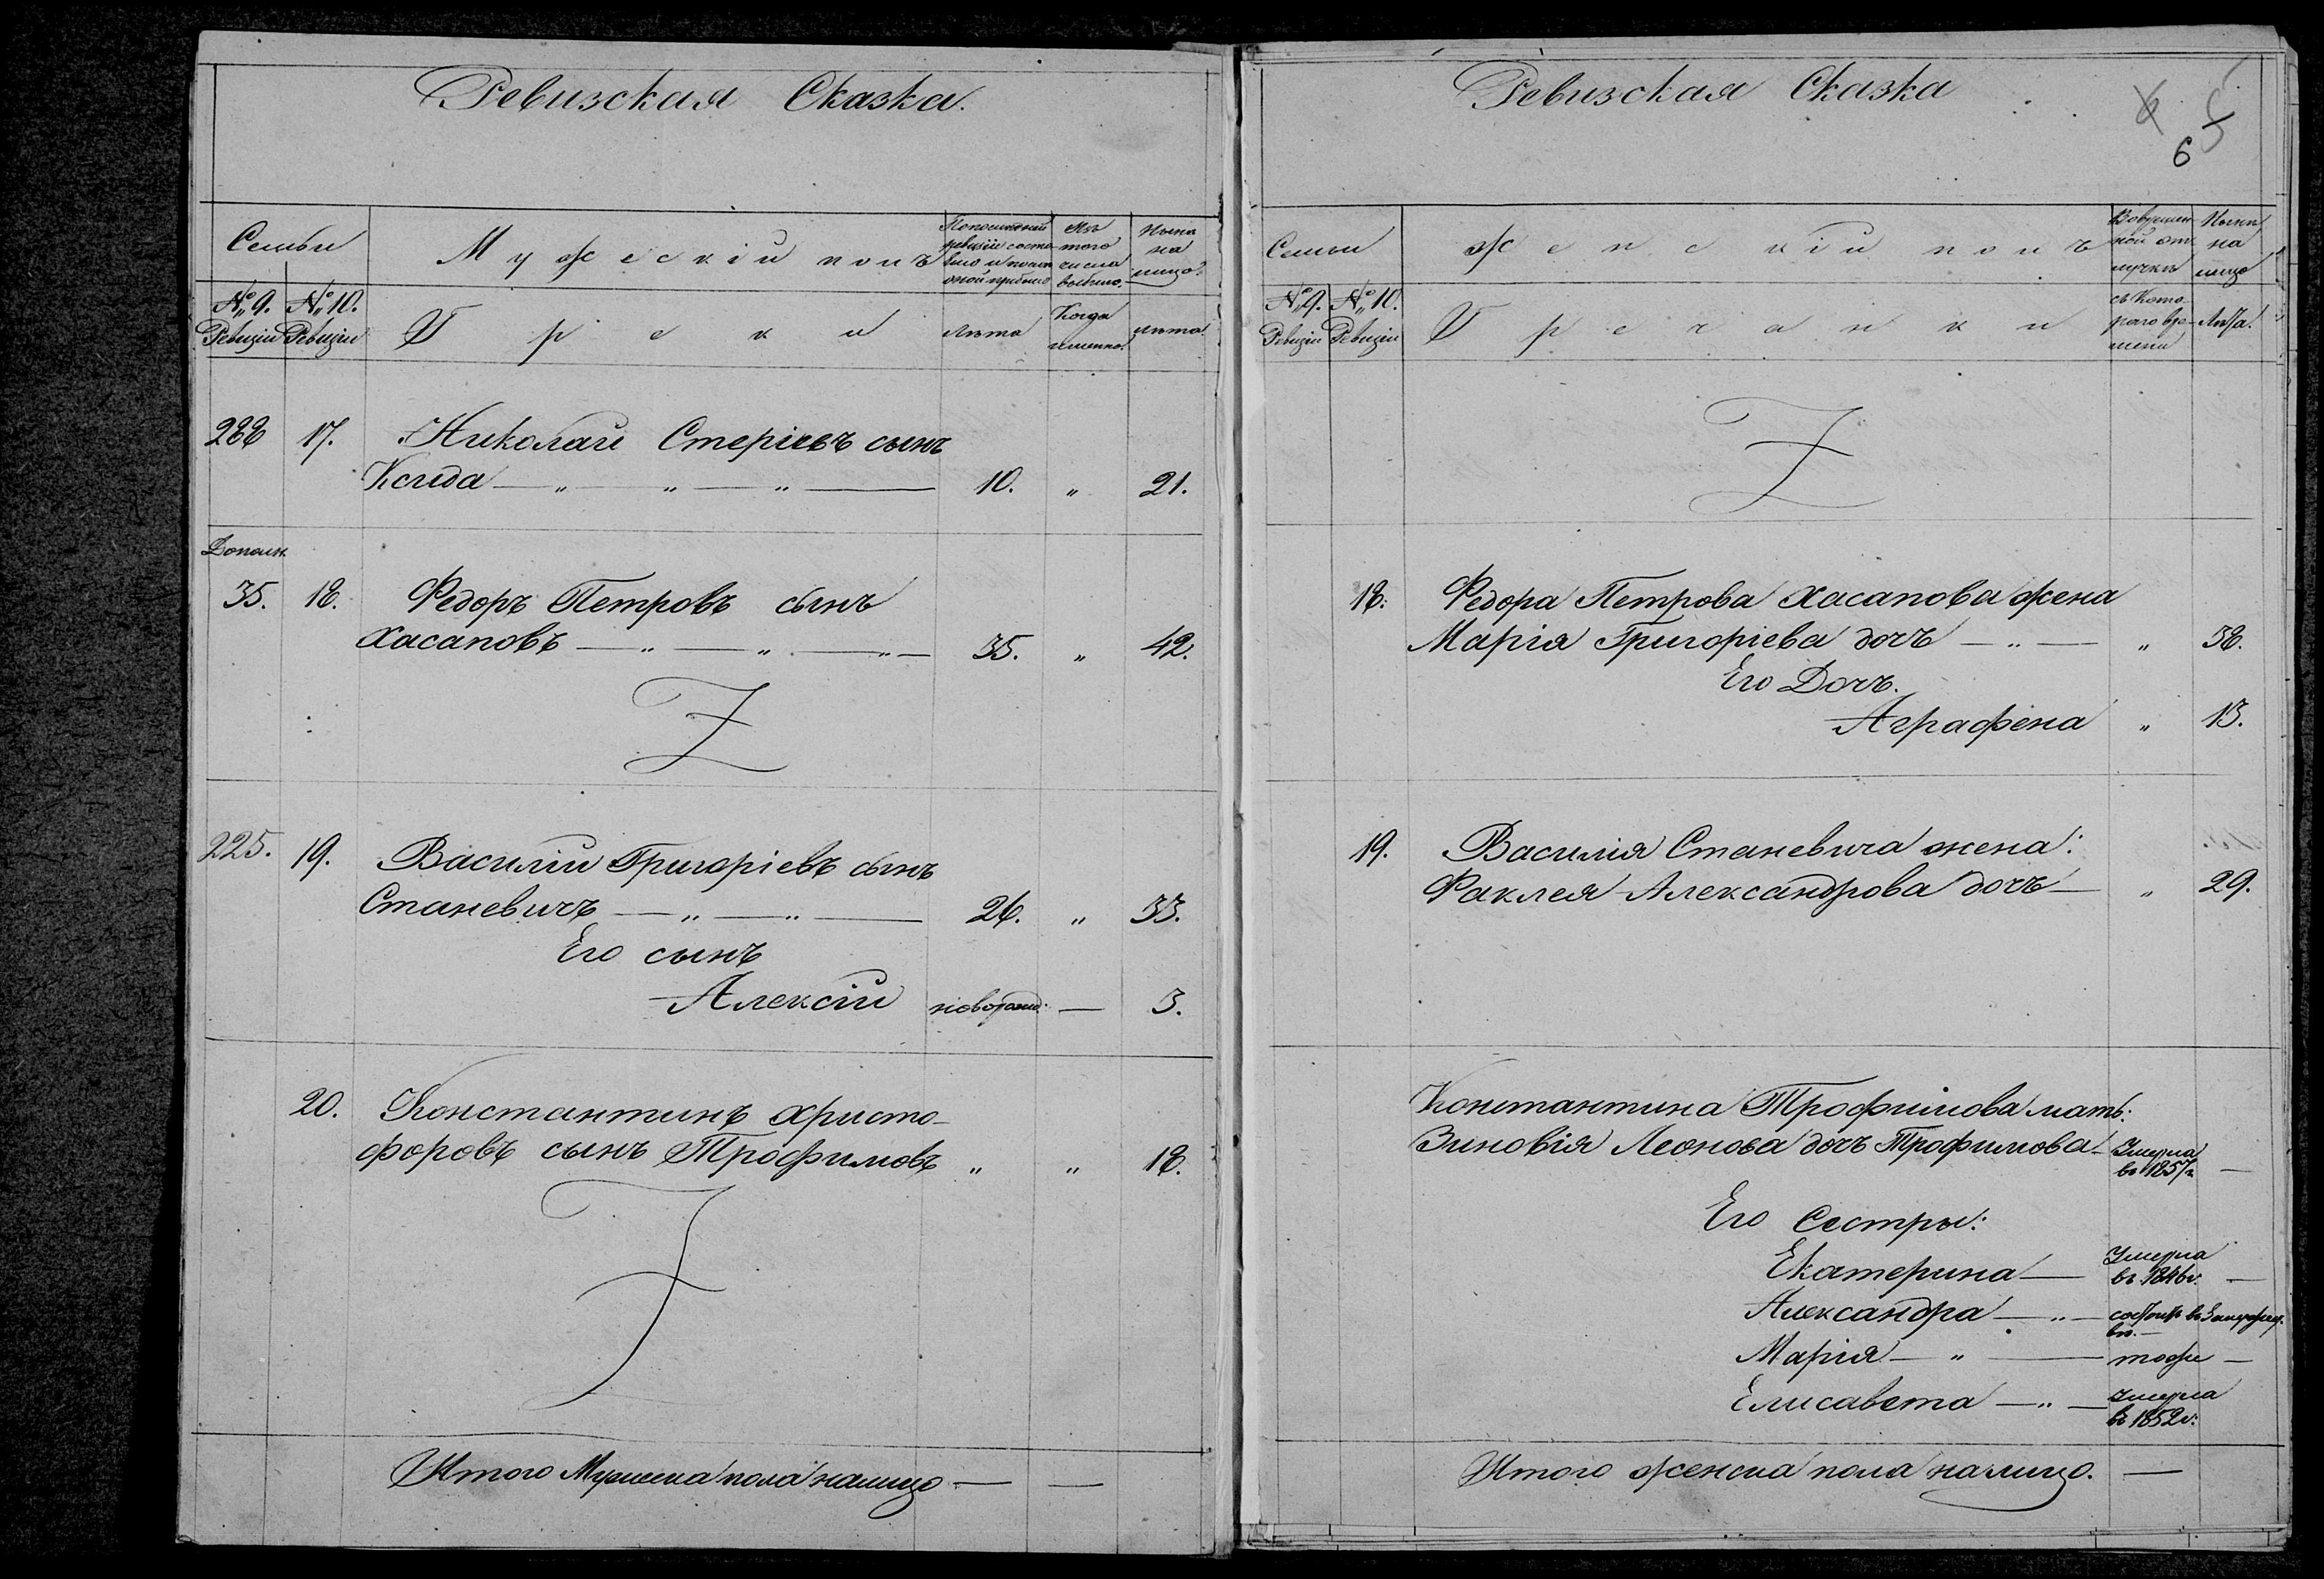 Ревизская Сказка.
Семьи
Мужескій полъ
По послѣдней
ревизіи состо-
яло и послѣ
оной прибыло
Изъ
того
числа
выбыло.
Нынѣ
на
лицо
№ 9.
Ревизіи
№ 10.
Ревизіи
Греки
лѣта
Когда
именно.
лѣта
288 17. Николай Стеріевъ сынъ
Ксида — „ — „ — „ — 10. „ 21.
Дополн.
35. 18. Федоръ Петровъ сынъ
Хасаповъ — „ — „ — „ — 35. „ 42.
225. 19. Василій Григоріевъ сынъ
Станевичъ — „ — „ — 26. „ 33.
Его сынъ
Алексій новорожд: — 3.
20. Константинъ Христо-
форовъ сынъ Трофимовъ „ „ 18.
Итого Мужеска пола налицо — —
Ревизская Сказка
4 5
6
Семьи
Женскій полъ
Во времен-
ной от-
лучкѣ
Нынѣ
на
лицо
№ 9.
Ревизіи
№ 10.
Ревизіи
Гречанки
съ кото-
раго вре-
мени
Лѣта.
18: Федора Петрова Хасапова жена
Марія Григоріева дочь — „ — „ 38.
Его Дочь.
Аграфена „ 13.
19. Василія Станевича жена:
Факлея Александрова дочь — „ 29.
Константина Трофимова мать:
Зиновія Леонова дочь Трофимова — Умерла
въ 1857 г. —
Его Сестры:
Екатерина — Умерла
въ 1846 г. —
Александра — „ — состоитъ въ Замужест-
вѣ. —
Марія — „ — тоже —
Елисавета — „ — Умерла
въ 1852 г:
Итого женска пола налицо. —